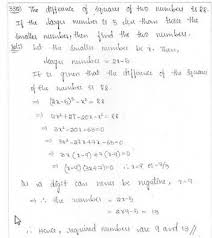 The difference of squares of two numbers is 88.
If the larger number is 5 less than twice the
smaller number, then find the two numbers.
Let the smaller number be x. Then,
larger number = 2x-5
It is given that the difference of the square
of the number is 88
⇒ (2x-5)² - x² = 88
⇒ 4x² + 25 - 20x - x² = 88
⇒ 3x² - 20x - 63 = 0
⇒ 3x² - 27x + 7x - 63 = 0
⇒ 3x (x-9) + 7 (x-9) = 0
⇒ (x-9) (3x+7) = 0 ∴ x = 9 or -7/3
As a digit can never be negative, x=9
⇒ ∴ the number = 2x-5
= 2×9-5 = 13
∴ Hence, required numbers are 9 and 13 //